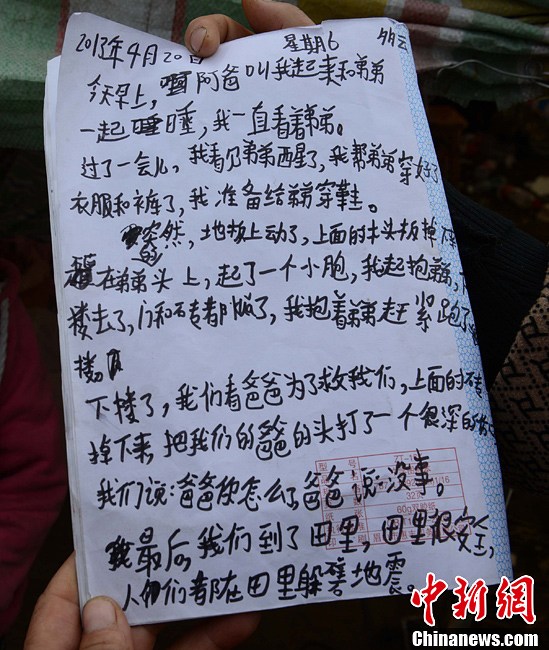 2013年4月20日 星期6
今天早上，阿爸叫我起来和弟弟
一起睡，我一直看着弟弟。
过了一会儿，我看见弟弟西星了，我帮弟弟穿好了
衣服和裤子了，我准备给弟弟穿鞋。
突然，地板上动了，上面的木头板掉
在弟弟头上，起了一个小胞，我起抱弟弟，
楼去了，门和石专都版了，我抱着弟弟赶紧跑了
楼。
下楼了，我们看爸爸为了救我们，上面的石专
掉下来，把我们的爸爸的头打了一个很深的
我们说：爸爸你怎么了，爸爸说：没事。
最后，我们到了田里，田里很安全，
人们都在田里躲地震。
型号
32
60g
中新网
Chinanews.com